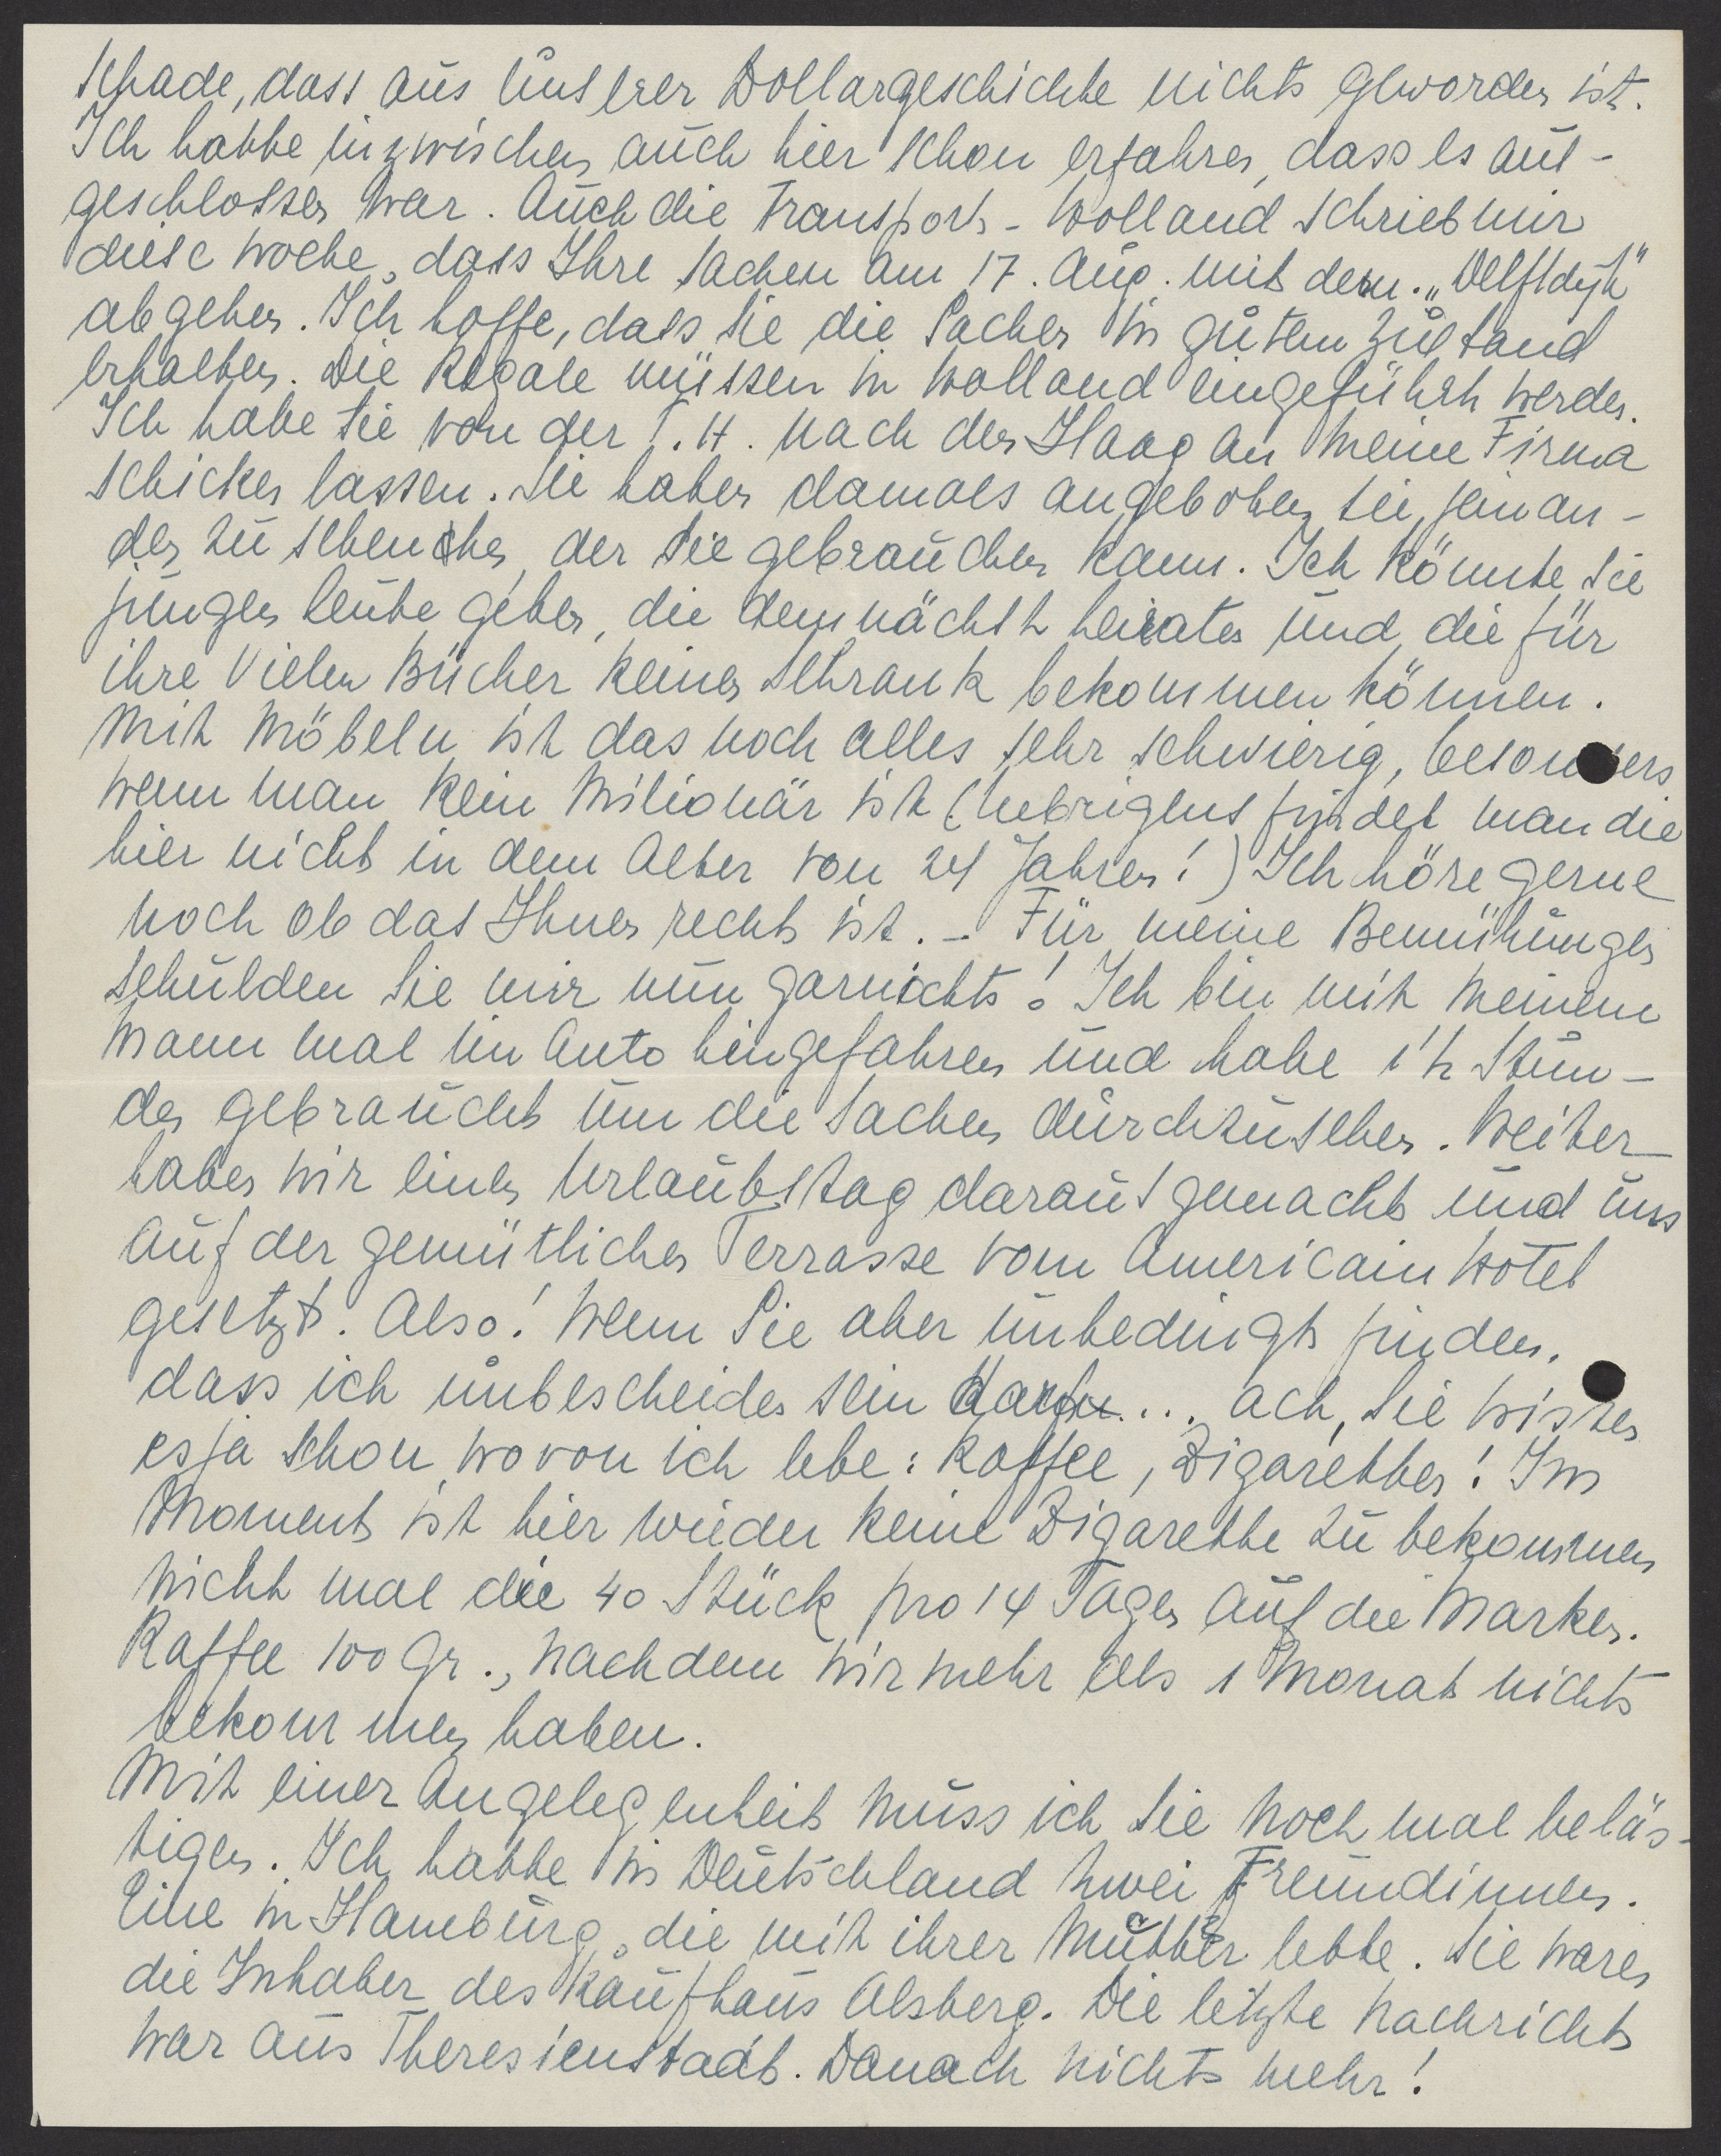 Schade, dass aus unserer Dollargeschichte nichts geworden ist.
Ich hatte inzwischen auch hier schon erfahren, dass es aus-
geschlossen war. Auch die Transport-Holland schrieb mir
diese Woche, dass Ihre Sachen am 17. Aug. mit dem „Delftdyk"
abgehen. Ich hoffe, dass Sie die Sachen in gutem Zustand
erhalten. Die Regale müssen in Holland eingeführt werden.
Ich habe sie von der T.H. nach den Haag an meine Firma
schicken lassen. Sie haben damals angeboten sie jeman-
den zu schenken, der sie gebrauchen kann. Ich könnte sie
jungen Leute geben, die demnächst heiraten und die für
ihre vielen Bücher keinen Schrank bekommen können.
Mit Möbeln ist das noch alles sehr schwierig, besonders
wenn man kein Milionär ist (uebrigens findet man die
hier nicht in dem Alter von 24 Jahren!) Ich höre gerne
noch ob das Ihnen recht ist. - Für meine Bemühungen
schulden Sie mir nun garnichts! Ich bin mit meinem
Mann mal im Auto hingefahren und habe 1½ Stun-
den gebraucht um die Sachen durchzusehen. Weiter
haben wir einen Urlaubstag daraus gemacht und uns
auf der gemütlichen Terrasse vom Americain Hotel
gesetzt. Also! Wenn Sie aber unbedingt finden,
dass ich unbescheiden sein darf.... ach, Sie wissen
es ja schon wovon ich lebe: Kaffee, Zigaretten! Im
Moment ist hier wieder keine Zigarette zu bekommen
nicht mal die 40 Stück pro 14 Tagen auf die Marken.
Kaffee 100 Gr., nachdem wir mehr als 1 Monat nichts
bekommen haben.
Mit einer Angelegenheit muss ich Sie noch mal beläs-
tigen. Ich hatte in Deutschland zwei Freundinnen.
Eine in Hamburg, die mit ihrer Mutter lebte. Sie waren
die Inhaber des Kaufhaus Alsberg. Die letzte Nachricht
war aus Theresienstadt. Danach nichts mehr!